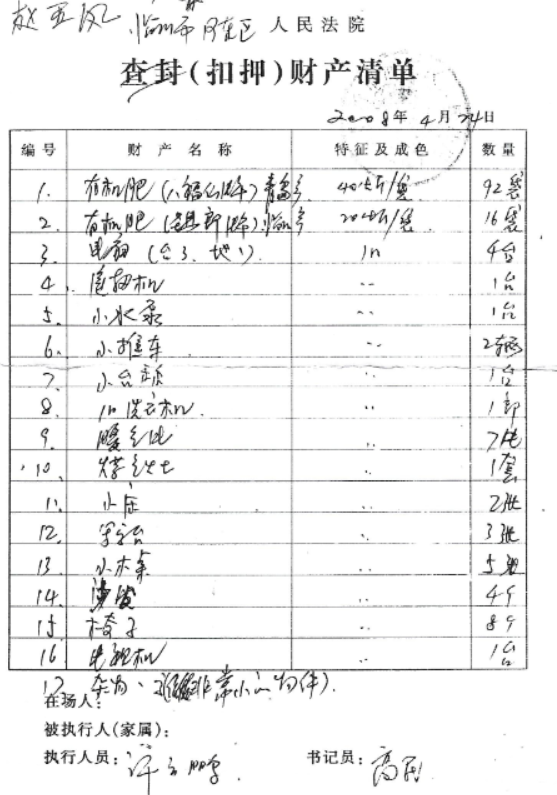 赵玉凤 临沂市河东区人民法院
查封(扣押)财产清单
2008年4月24日
编号 财产名称 特征及成色 数量
1. 有机肥( ) 40公斤/袋 92袋
2. 有机肥( ) 20公斤/袋 16袋
3. 电扇(台3、地1). 旧 4台
4. 机 〃 1台
5. 小水泵 〃 1台
6. 小推车 〃 2辆
7. 小台 〃 1台
8. 旧洗衣机. 〃 1部
9. 暖气片 〃 7片
10. 〃 1套
11. 小床 〃 2张
12. 写字台 〃 3张
13. 小木桌 〃 5张
14. 沙发 〃 4个
15 椅子 〃 8个
16 机 〃 1台
17 杂物、( 非常小的物件).
在场人:
被执行人(家属):
执行人员: 书记员: